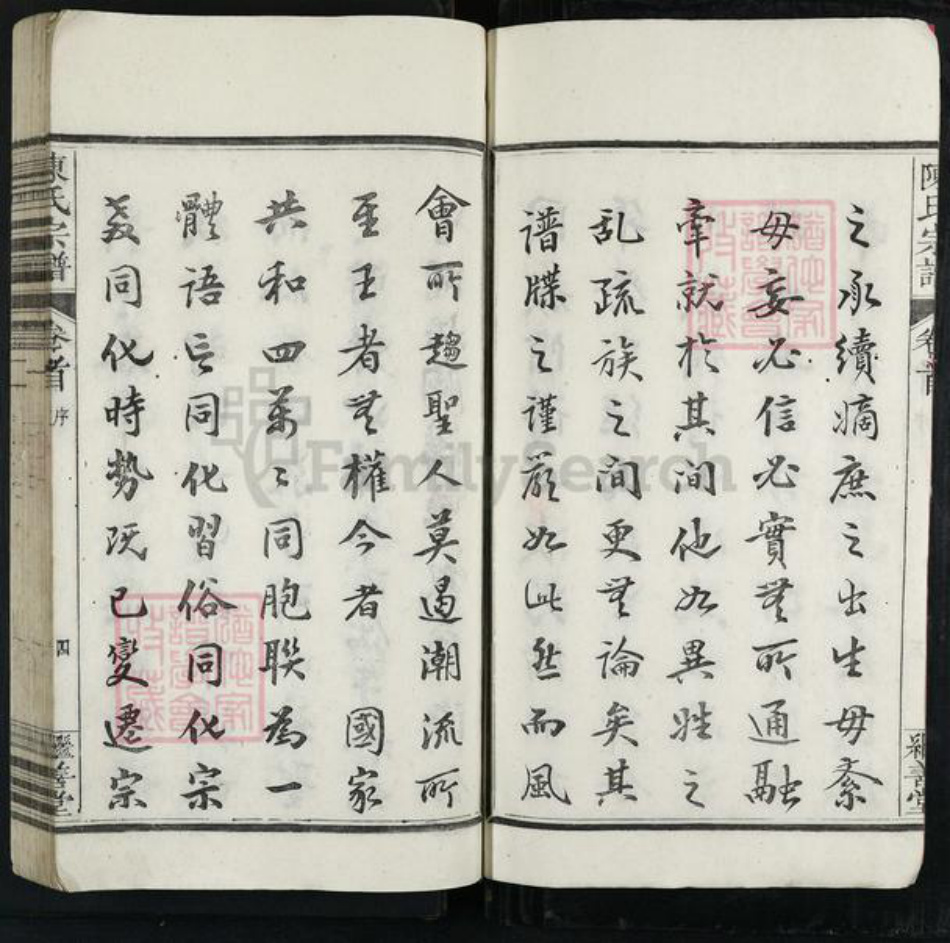 之承續嫡庶之出生毋紊
毋妄必信必實無所通融
牽就於其間他如異姓之
乱疏族之間更無論矣其
譜牒之謹嚴如此然而風
會所趨聖人莫遏潮流所
至王者無權今者 國家
共和四萬〻同胞聯為一
體語言同化習俗同化宗
教同化時勢既已變遷宗
陳氏宗譜
卷首
陳氏宗譜
卷首
序
四
善堂
善堂
FamilySearch